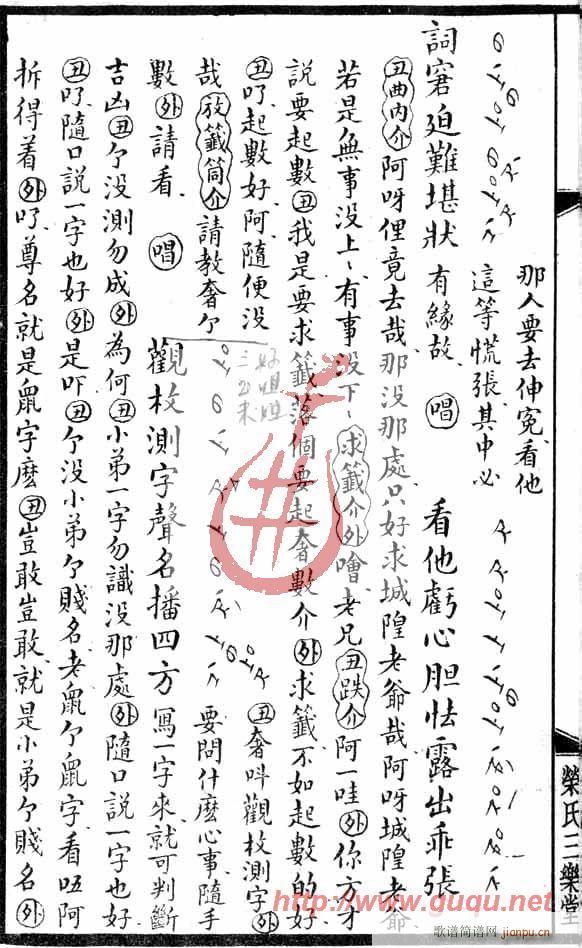 那人要去伸冤看他
這等慌張其中必
詞窘迫難堪狀 有緣故 唱 看他虧心胆怯露出乖張
丑曲内介 阿呀俚竟去哉那没那處只好求城隍老爺哉阿呀城隍老爺
若是無事没上、有事没下、 求籤介 外 噲老兄 丑跌介 阿一哇 外 你方才
說要起數 丑 我是要求籤落個要起奢數介 外 求籤不如起數的好
丑 吖起數好阿隨便没 丑 奢吽觀枚測字 外
哉 放籤筒介 請教奢个 要問什麽心事隨手
數 外 請看 唱 觀枚測字聲名播四方 寫一字來就可判斷
吉凶 丑 个没測勿成 外 為何 丑 小弟一字勿識没那處 外 隨口說一字也好
丑 吖隨口說一字也好 外 是吓 丑 个没小弟个賤名老鼠个鼠字看啞阿
拆得着 外 吖尊名就是鼠字麽 丑 豈敢豈敢就是小弟个賤名 外
榮氏三樂堂
http://www.guqu.net
歌谱简谱网
jianpu.cn